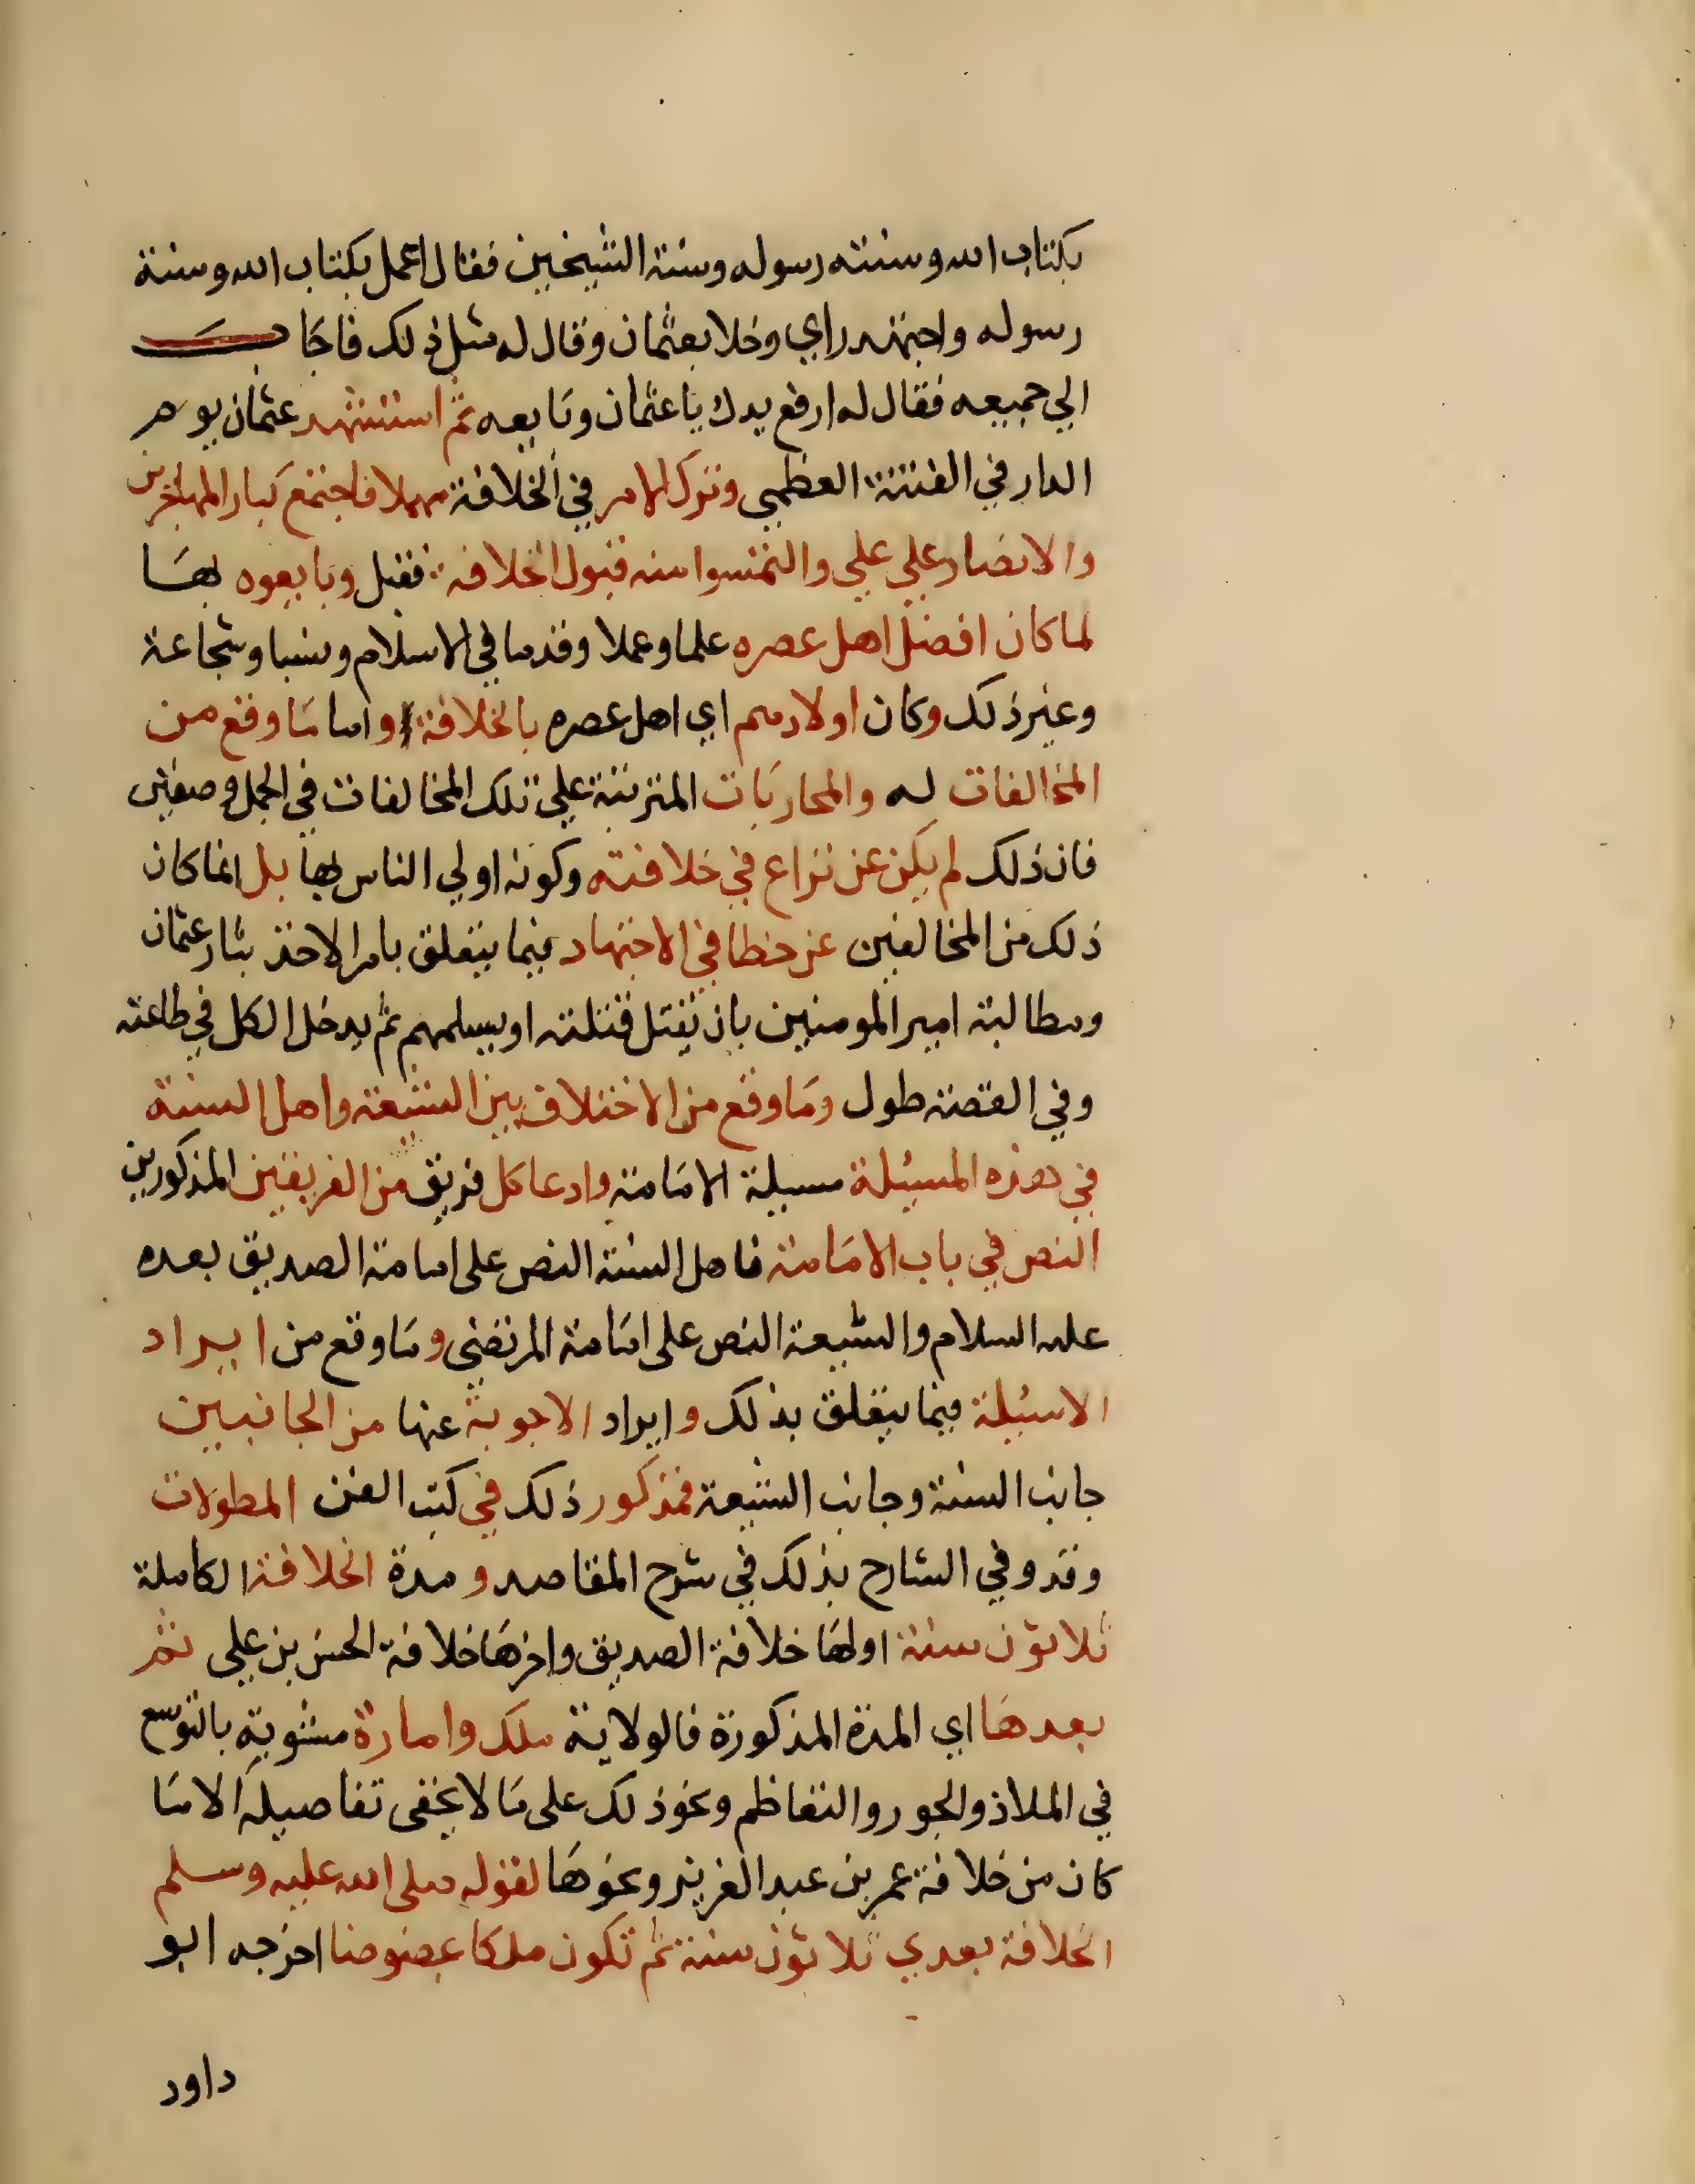 بكتاب الله وسنته رسوله وسنة الشيخين فقال اعمل بكتاب الله وسنة
رسوله واجتهد راي وخلا بعثمان وقال له مثل ذلك فاجاب
الي جميعه فقال له ارفع يدك يا عثمان وبايعه ثم استشهد عثمان يوم
الدار في الفتنة العظمي وترك الامر في الخلافة مهملا فاجتمع كبار المهاجرين
والانصار علي علي والتمسوا منه قبول الخلافه فقبل وبايعوه بها
لما كان افضل اهل عصره علما وعملا وقدما في الاسلام ونسبا وشجاعة
وغير ذلك وكان اولادهم اي اهل عصره بالخلافة واما ما وقع من
المخالفات له والمحاربات المترتبة علي تلك المخالفات في الجمل وصفين
فان ذلك لم يكن عن نزاع في خلافته وكونه اولي الناس بها بل انما كان
ذلك من المخالفين عن خطا في الاجتهاد فيما يتعلق بامر الاخذ بثار عثمان
ومطالبة امير المومنين بان يقتل قتلته او يسلمهم ثم يدخل الكل في طاعته
وفي القصة طول وما وقع من الاختلاف بين الشيعة واهل السنة
في هذه المسئلة مسيلة الامامة وادعا كل فريق من الفريقين المذكورين
النص في باب الامامة فاهل السنة النص على امامة الصديق بعده
عليه السلام والشيعة النص على امامة المرتضي وما وقع من ايراد
الاسئلة فيما يتعلق بذلك وايراد الاجوبة عنها من الجانبين
جانب السنة وجانب الشيعة فمذكور ذلك في كتب الفن المطولات
وقد وفي الشارح بذلك في شرح المقاصد ومدة الخلافة الكاملة
ثلاثون سنة اولها خلافة الصديق واخرها خلافة الحسن بن علي ثم
بعدها اي المدة المذكورة فالولاية ملك وامارة مشوبة بالتوسع
في الملاذ والجور والتعاظم ونحو ذلك على ما لا يخفى تفاصيله الا ما
كان من خلافة عمر بن عبد العزيز ونحوها لقوله صلى الله عليه وسلم
الخلافة بعدي ثلاثون سنة ثم تكون ملكا عضوضا اخرجه ابو
داود